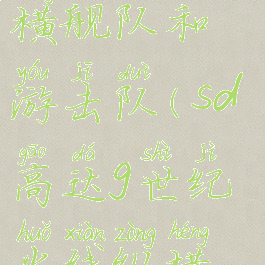 横舰队和
yóu jī duì
游击队(sd
gāo dá shì jì
高达g世纪
huǒ xiàn zòng héng
火线纵横